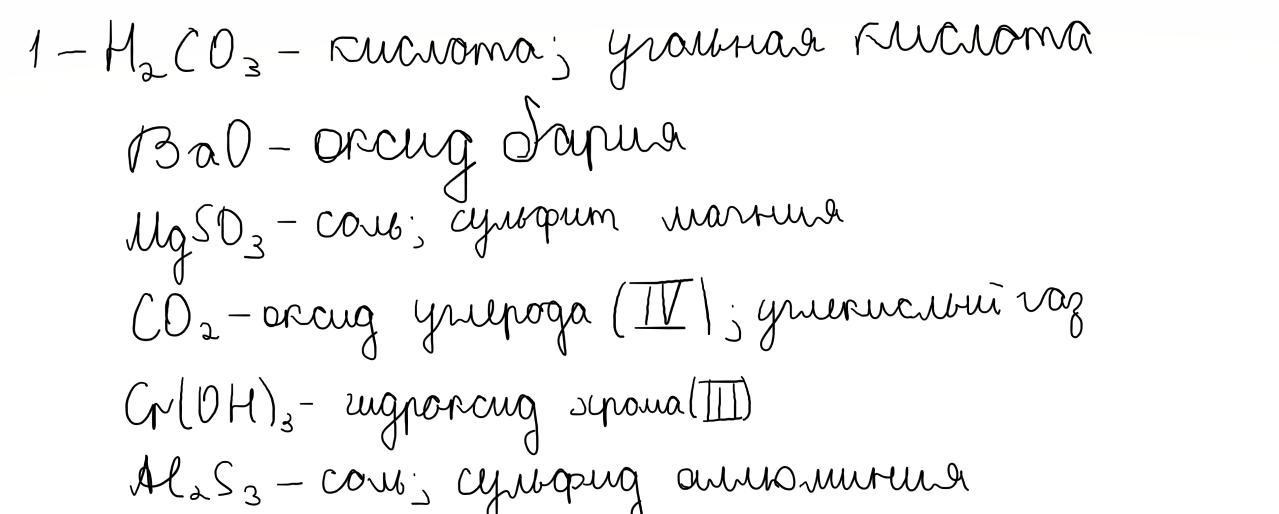 1 – H₂CO₃ – кислота; угольная кислота
BaO – оксид бария
MgSO₃ – соль; сульфит магния
CO₂ – оксид углерода (IV); углекислый газ
Cr(OH)₃ – гидроксид хрома (III)
Al₂S₃ – соль; сульфид аллюминия